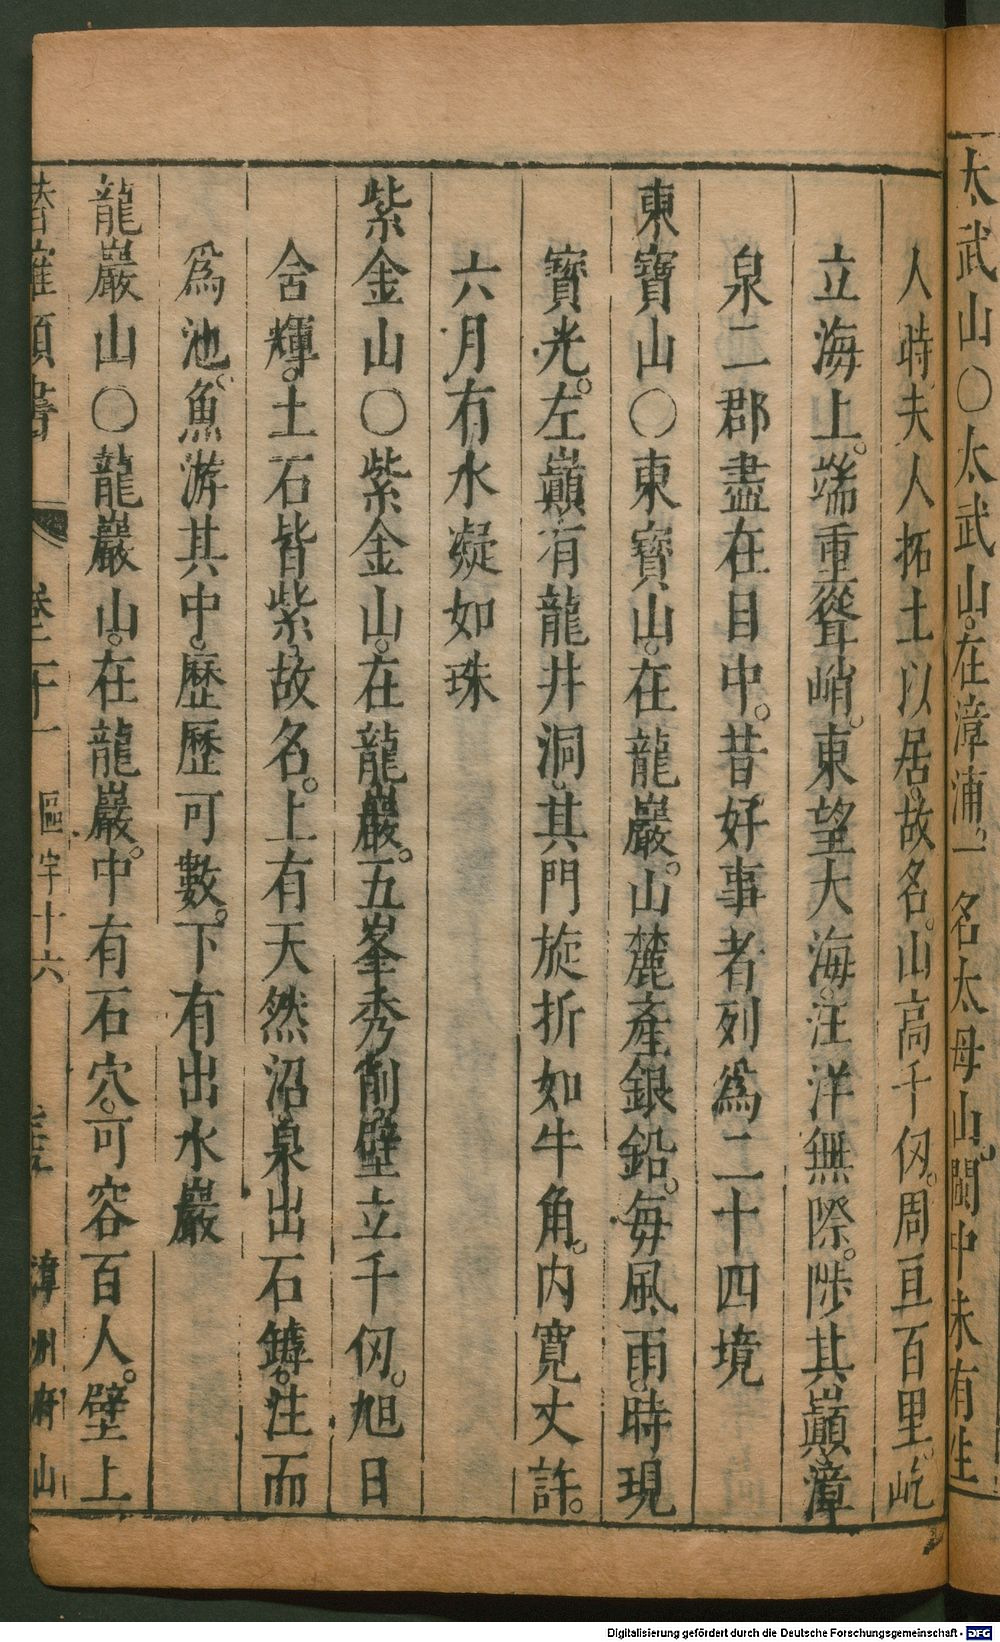 太武山○太武山。在漳浦。一名太母山。閩中未有生
人時、夫人拓土以居。故名。山高千仞。周亘百里。屹
立海上。端重聳峭。東望大海。汪洋無際。陟其巔。漳
泉二郡盡在目中。昔好事者列爲二十四境
東寶山○東寶山。在龍巖。山麓產銀鉛。每風雨。時現
寶光。左巔有龍井洞。其門旋折如牛角。內寬丈許。
六月有水凝如珠
紫金山○紫金山。在龍巖。五峯秀削。壁立千仞。旭日
含輝。土石皆紫。故名。上有天然沼。泉出石罅。注而
爲池。魚游其中。歷歷可數。下有出水巖
龍巖山○龍巖山。在龍巖。中有石穴。可容百人。壁上
卷二十一 區宇十六 漳州府山
Digitalisierung gefördert durch die Deutsche Forschungsgemeinschaft - DFG